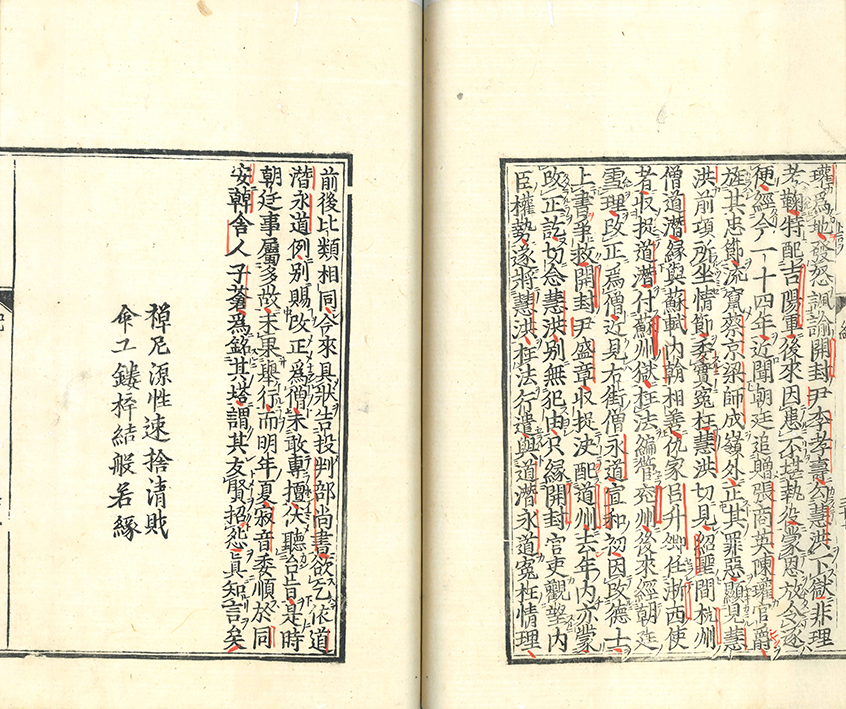 瓘爲地發怒諷諭開封尹李孝壽勾慧洪下獄非理
考鞫特配吉陽軍後來因患不堪執役蒙恩放令逐
便經今一十四年近聞朝廷追贈張商英陳瓘官爵
旌其忠節流竄蔡京梁師成嶺外正其罪惡顯見慧
洪前項所坐情節委實寃枉慧洪切見紹聖間杭州
僧道潛緣與蘇軾内翰相善仇家呂升卿任浙西使
者收捉道潛付蘇州獄枉法編管兖州後來經朝廷
雪理改正爲僧近見右街僧永道宣和初因改德士
上書爭救開封尹盛章收捉決配道州去年内亦蒙
改正訖切念慧洪別無犯由只緣開封官吏觀望内
臣權勢遂將慧洪枉法行遣與道潛永道寃枉情理
前後比類相同今來具狀告投判部尚書欲乞依道
潛永道例別賜改正爲僧未敢專擅伏聽台旨是時
朝廷事屬多故未果舉行而明年夏寂音委順於同
安韓舍人子蒼爲銘其塔謂其友賢招怨眞知言矣
禪尼源性速捨清財
命工鏤梓結般若緣